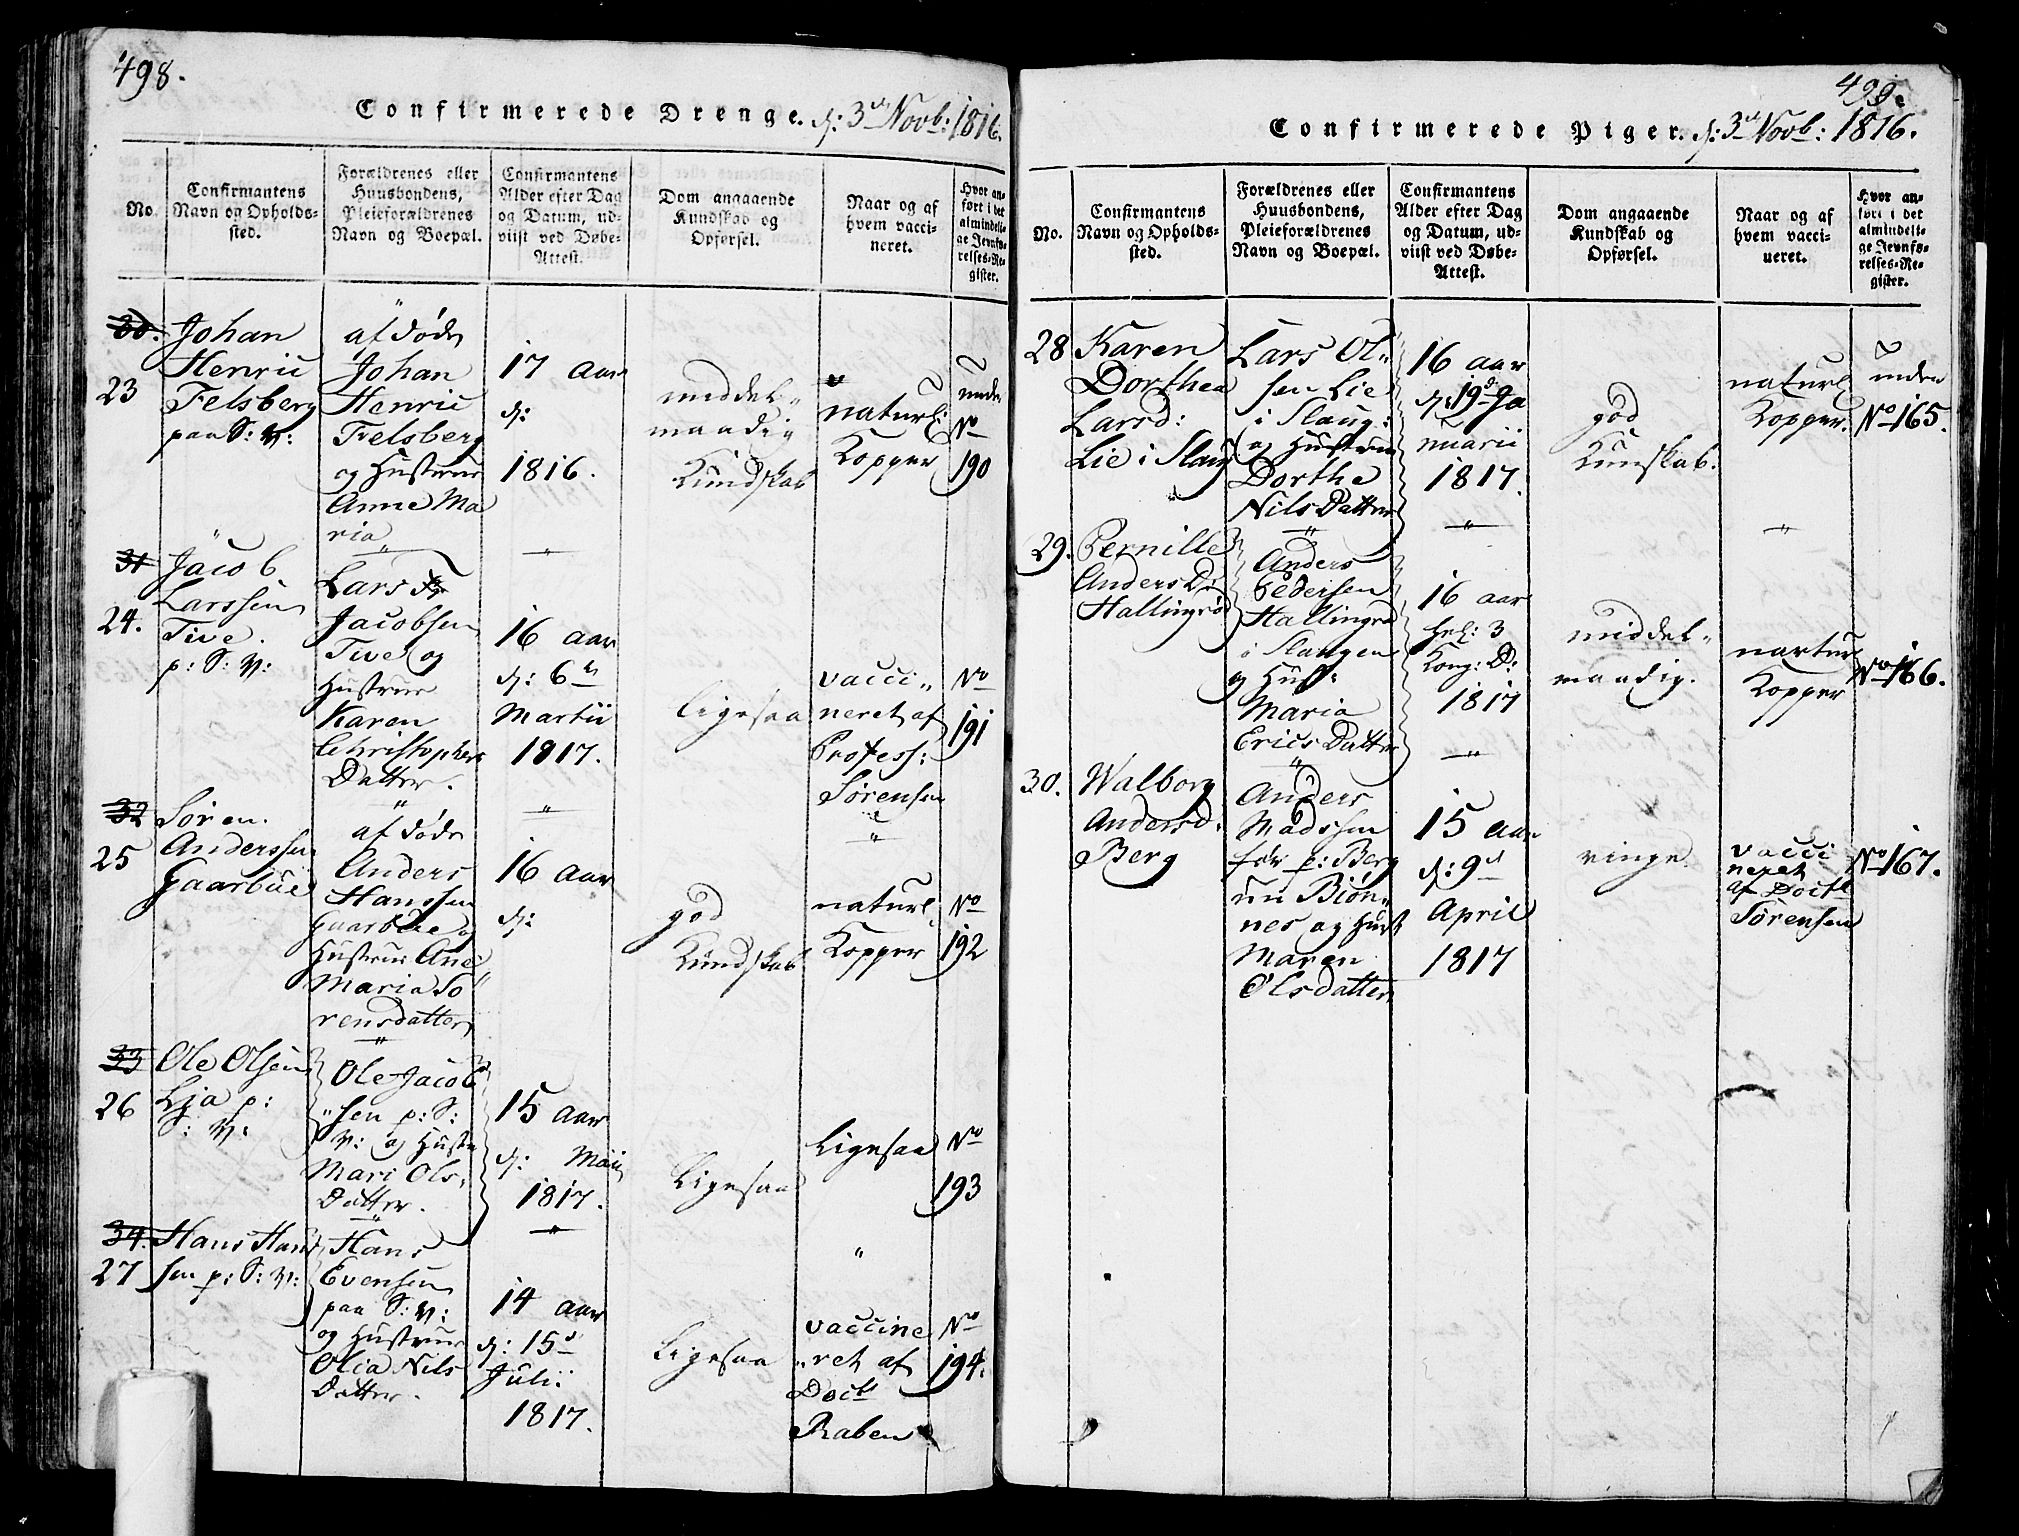 498.
Confirmerede Drenge. d: 3de Novb: 1816.
No.
Confirmantens
Navn og Opholds-
sted.
Forældrenes eller
Huusbondens,
Pleieforældrenes
Navn og Boepæl.
Confirmantens
Alder efter Dag
og Datum, ud-
viist ved Døbe-
Attest.
Dom angaaende
Kundskab og
Opførsel.
Naar og af
hvem vacci-
neret.
Hvor an-
ført i det
almindeli-
ge Jevnfø-
relses-Re-
gister.
30.
23
Johan
Henric
Felsberg
paa S: V:
afdøde
Johan
Henric
Felsberg
og Hustrue
Anne Ma
ria
17 Aar
d:
1816.
middel-
maadig
Kundskab
naturl:
Kopper
unde
No
190
31
24.
Jacob
Larssen
Tive.
p: S: V:
Lars
Jacobsen
Tive og
Hustrue
Karen
Christophers
Datter.
16 Aar
d: 6te
Martii
1817.
ligesaa
vacci-
neret af
Profess:
Sørensen
No
191
32
25
Søren
Anderssen
Gaarbue
afdøde
Anders
Hanssen
Gaarbue og
Hustrue Ane
Maria So
rensdatter
16 Aar
d:
god
Kundskab
naturl
Kopper
No
192
33
26
Ole Olsen
Lia p:
S: V:
Ole Jacob
sen p: S:
V: og Hustr
Mari Ols
Datter.
15 Aar
d: Maii
1817.
Ligesaa
Ligesaa
No
193
34.
27
Hans Han
sen p: S: V:
Hans
Evensen
paa S: V:
og Hustrue
Olia Nils
Datter.
14 Aar
d: 15d
Julii
1817.
Ligesaa
vaccine
ret af
Doct
Raben
No
194.
499.
Confirmerede Piger. d: 3de Novb: 1816.
No.
Confirmantens
Navn og Opholds-
sted.
Forældrenes eller
Huusbondens,
Pleieforældrenes
Navn og Boepæl.
Confirmantens
Alder efter Dag
og Datum, ud-
viist ved Døbe-
Attest.
Dom angaaende
Kundskab og
Opførsel.
Naar og af
hvem vacci-
neret.
Hvor an-
ført i det
almindeli-
ge Jevnfø-
relses-Re-
gister.
28
Karen
Dorthea
Larsd:
Lie i Slaug
Lars Ol-
sen Lie
i Slaug:
og Hustrue
Dorthe
Nils Datter
16 aar
d: 19d Ja
nuarii
1817.
god
Kunskab.
naturl
Kopper.
unden
No 165.
29.
Pernille
Anders D
Hallingrø
Anders
Pedersen
Hallingrø
i Slaugen
og Hust:
Maria
Erics Datter
16 aar
Hel: 3
Kong: D:
1817
middel-
maadig.
nartur
Kopper
No 166.
30.
Walborg
Andersd.
Berg
Anders
Madssen
før p: Berg
nu Biøn-
nes og Hust
Maren
Olsdatter
15 aar
d: 9d
April
1817
ringe.
vacci
neret
af Doctr
Sørensen
No 167.